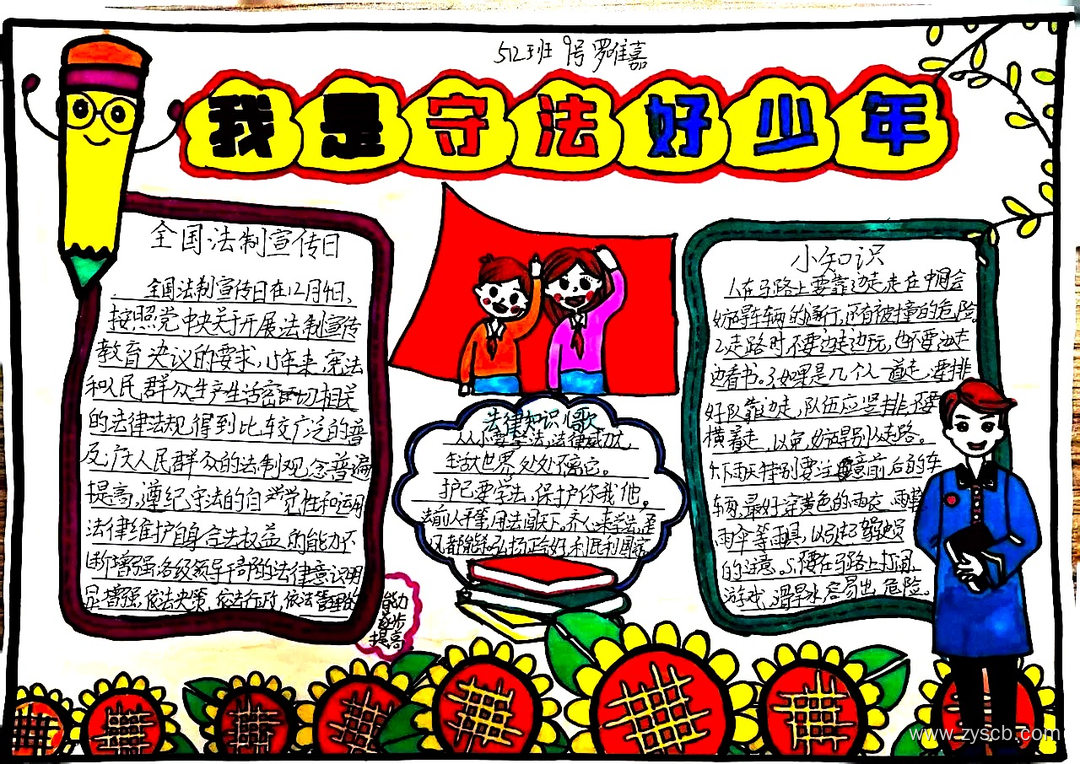 512班 9号 罗唯嘉
我是守法好少年
全国法制宣传日
全国法制宣传日在12月4日,
按照党中央关于开展法制宣传
教育决议的要求,15年来,宪法
和人民群众生产生活密切相关
的法律法规得到比较广泛的普
及,广大人民群众的法制观念普遍
提高,遵纪守法的自觉性和运用
法律维护自身合法权益的能力不
断增强各级领导干部的法律意识明
显增强,依法决策,依法行政,依法管理的
能力
逐步
提高
法律知识儿歌
从小要学法,法律威力大
生活大世界处处不离它。
护己要学法,保护你我他。
法前人平等,用法闯天下。齐心来学法
弘扬正恰好利民利国家
小知识
1.在马路上要靠边走,走在中间会
妨碍车辆的通行,还有被撞的危险
2.走路时,不要边走边玩,也不要边走
边看书。3.如果是几个人一道走,要排
好队靠边走,队伍应竖排,不要
横着走,以免妨碍别人走路。
4.下雨天特别要注意前后的车
辆,最好穿黄色的雨衣、雨鞋
雨伞等雨具,以引起驾驶员
的注意。5.不要在马路上打闹、
游戏、溜旱冰容易出危险。
www.zyscb.com